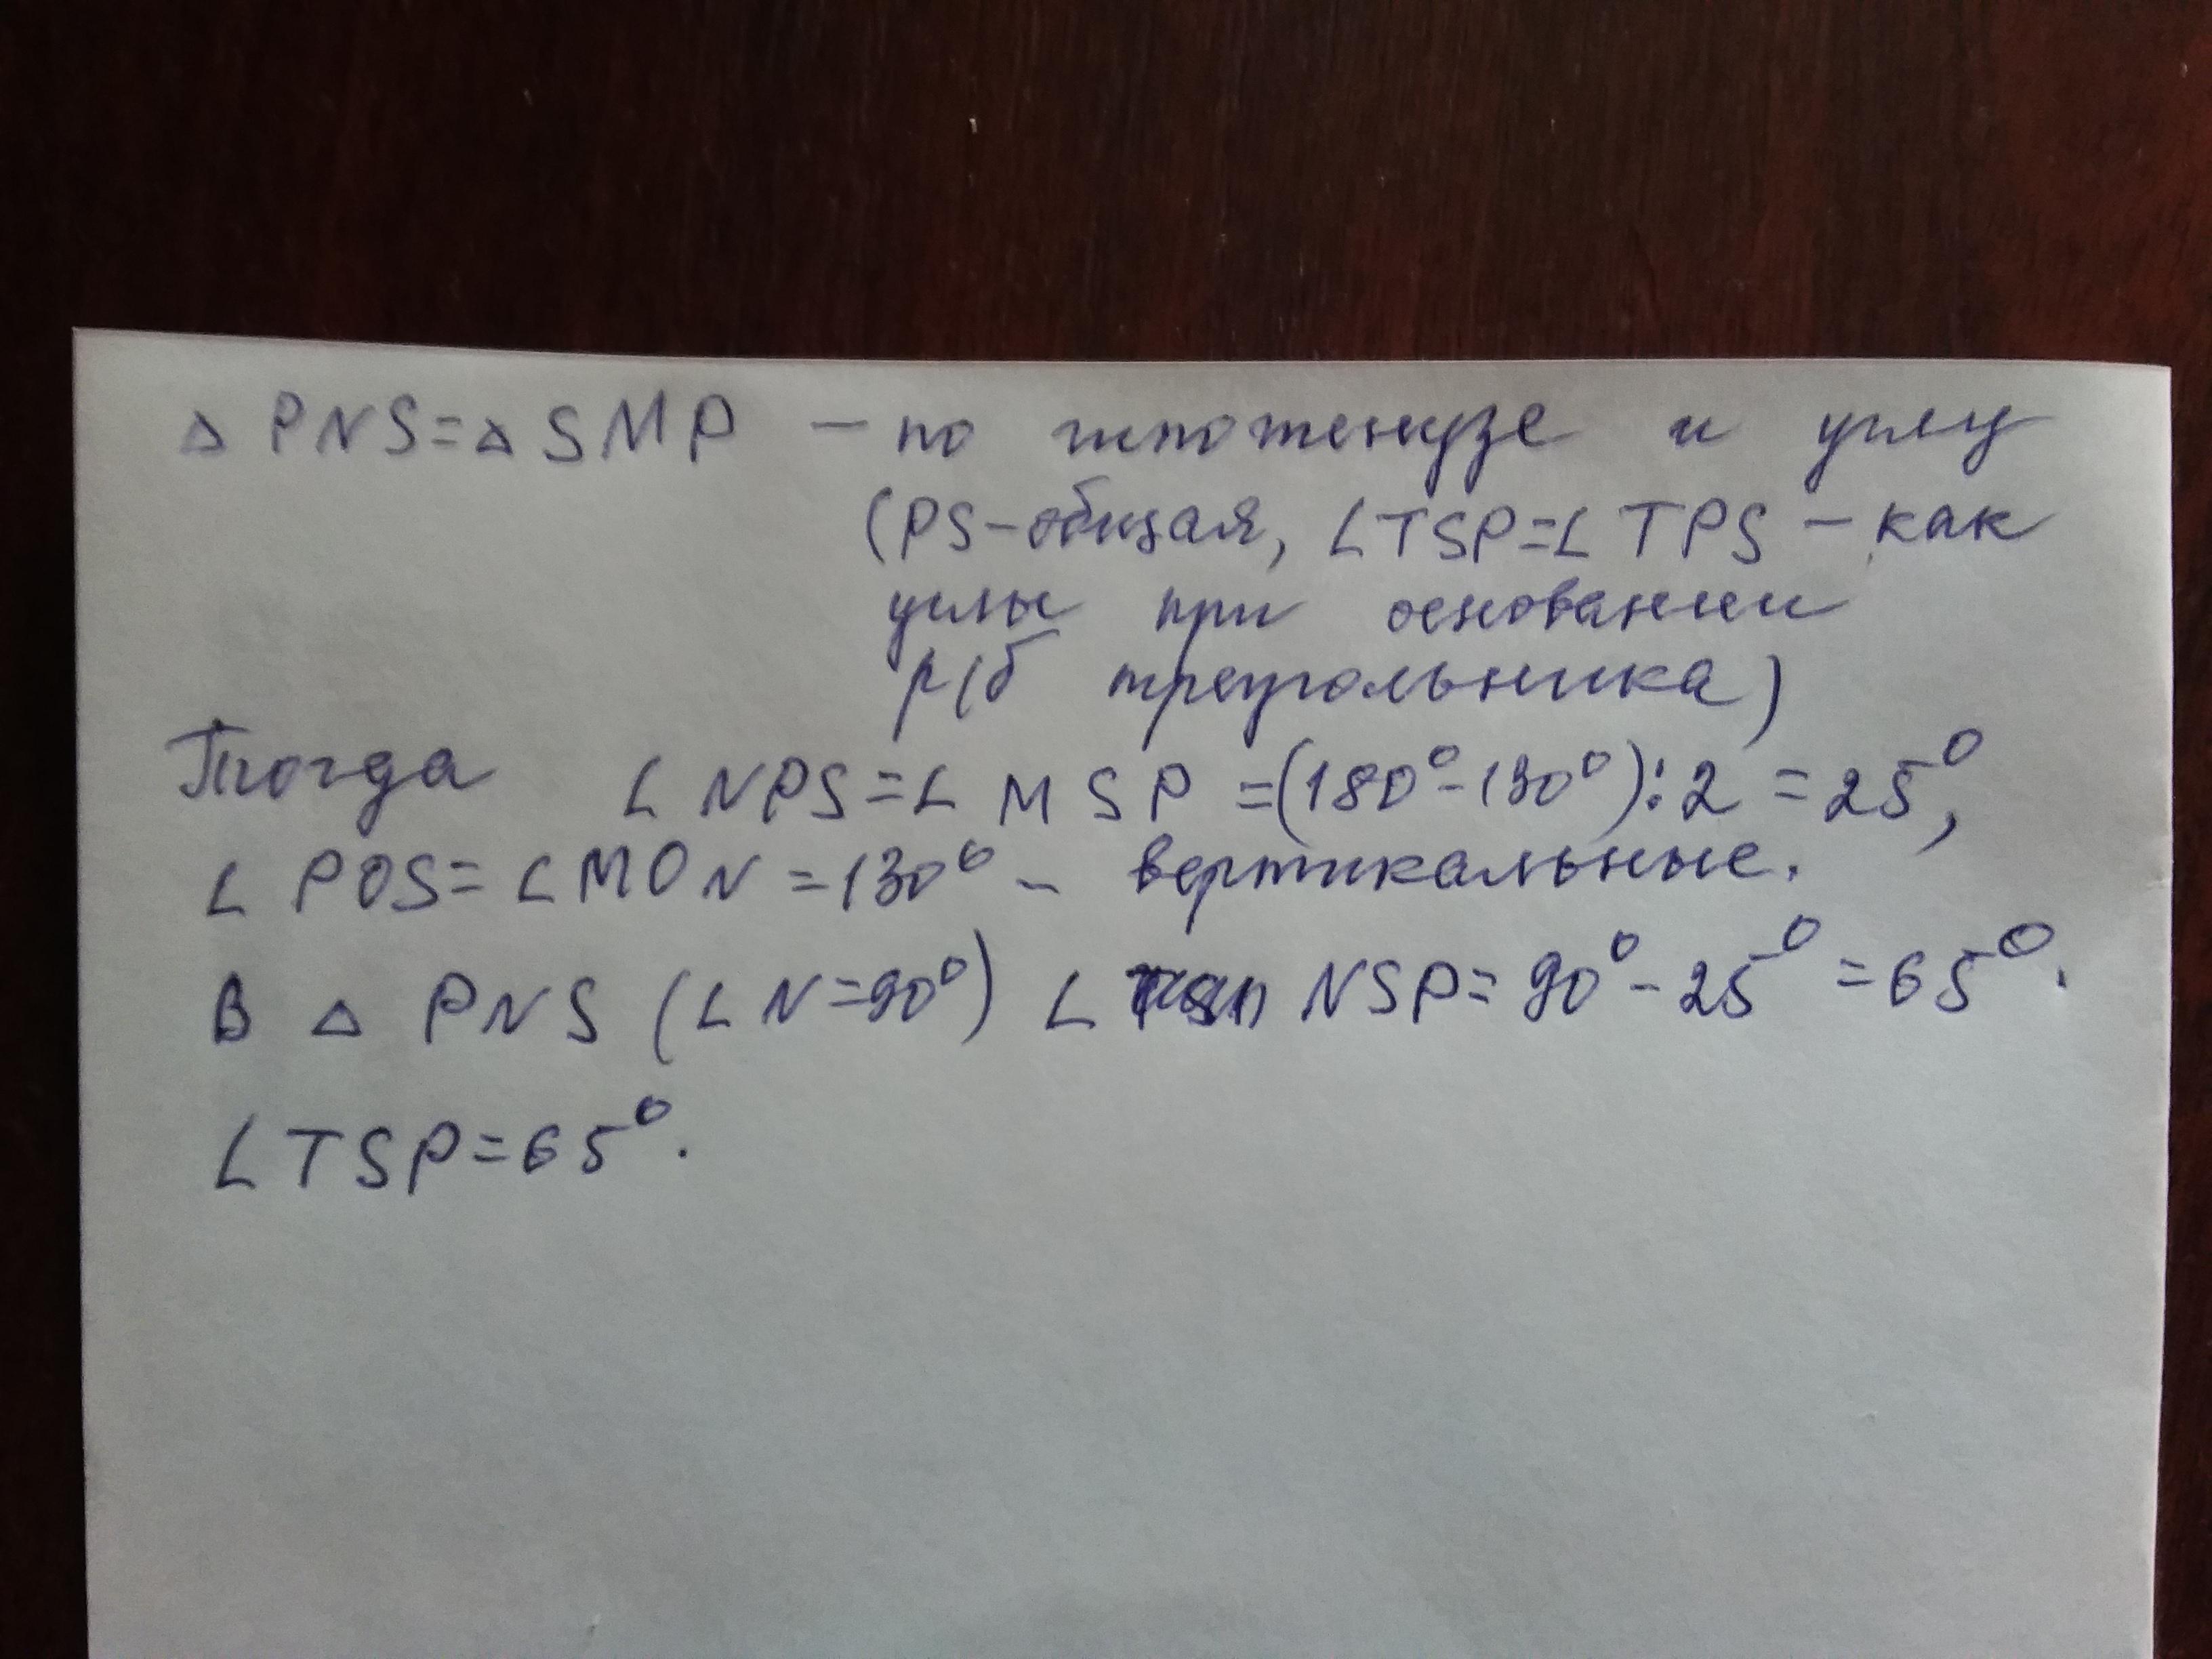 △ PNS=△ SMP – по гипотенузе и углу
(PS-общая, ∠TSP=∠TPS – как
углы при основании
р/б треугольника)
Тогда ∠NPS=∠MSP=(180°-130°):2=25°,
∠POS=∠MON=130° – вертикальные.
В △ PNS (∠N=90°) ∠ NSP=90°-25°=65°.
∠TSP=65°.